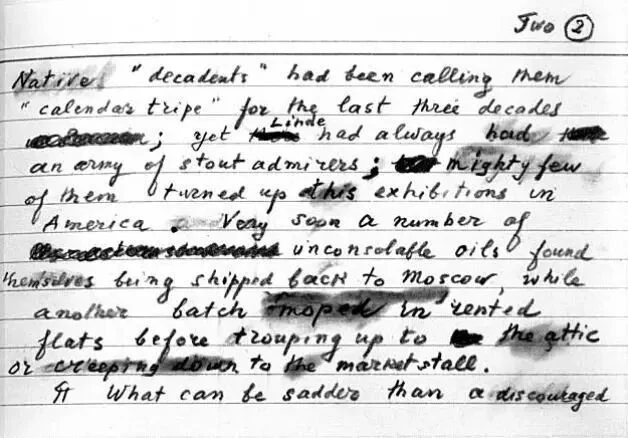 Two ②
Native "decadents" had been calling them
"calendar tripe" for the last three decades
; yet Linde had always had
an army of stout admirers; mighty few
of them turned up this exhibitions in
America. Very soon a number of
unconsolable oils found
themselves being shipped back to Moscow, while
another batch moped in rented
flats before trouping up to the attic
or creeping down to the market stall.
¶ What can be sadder than a discouraged